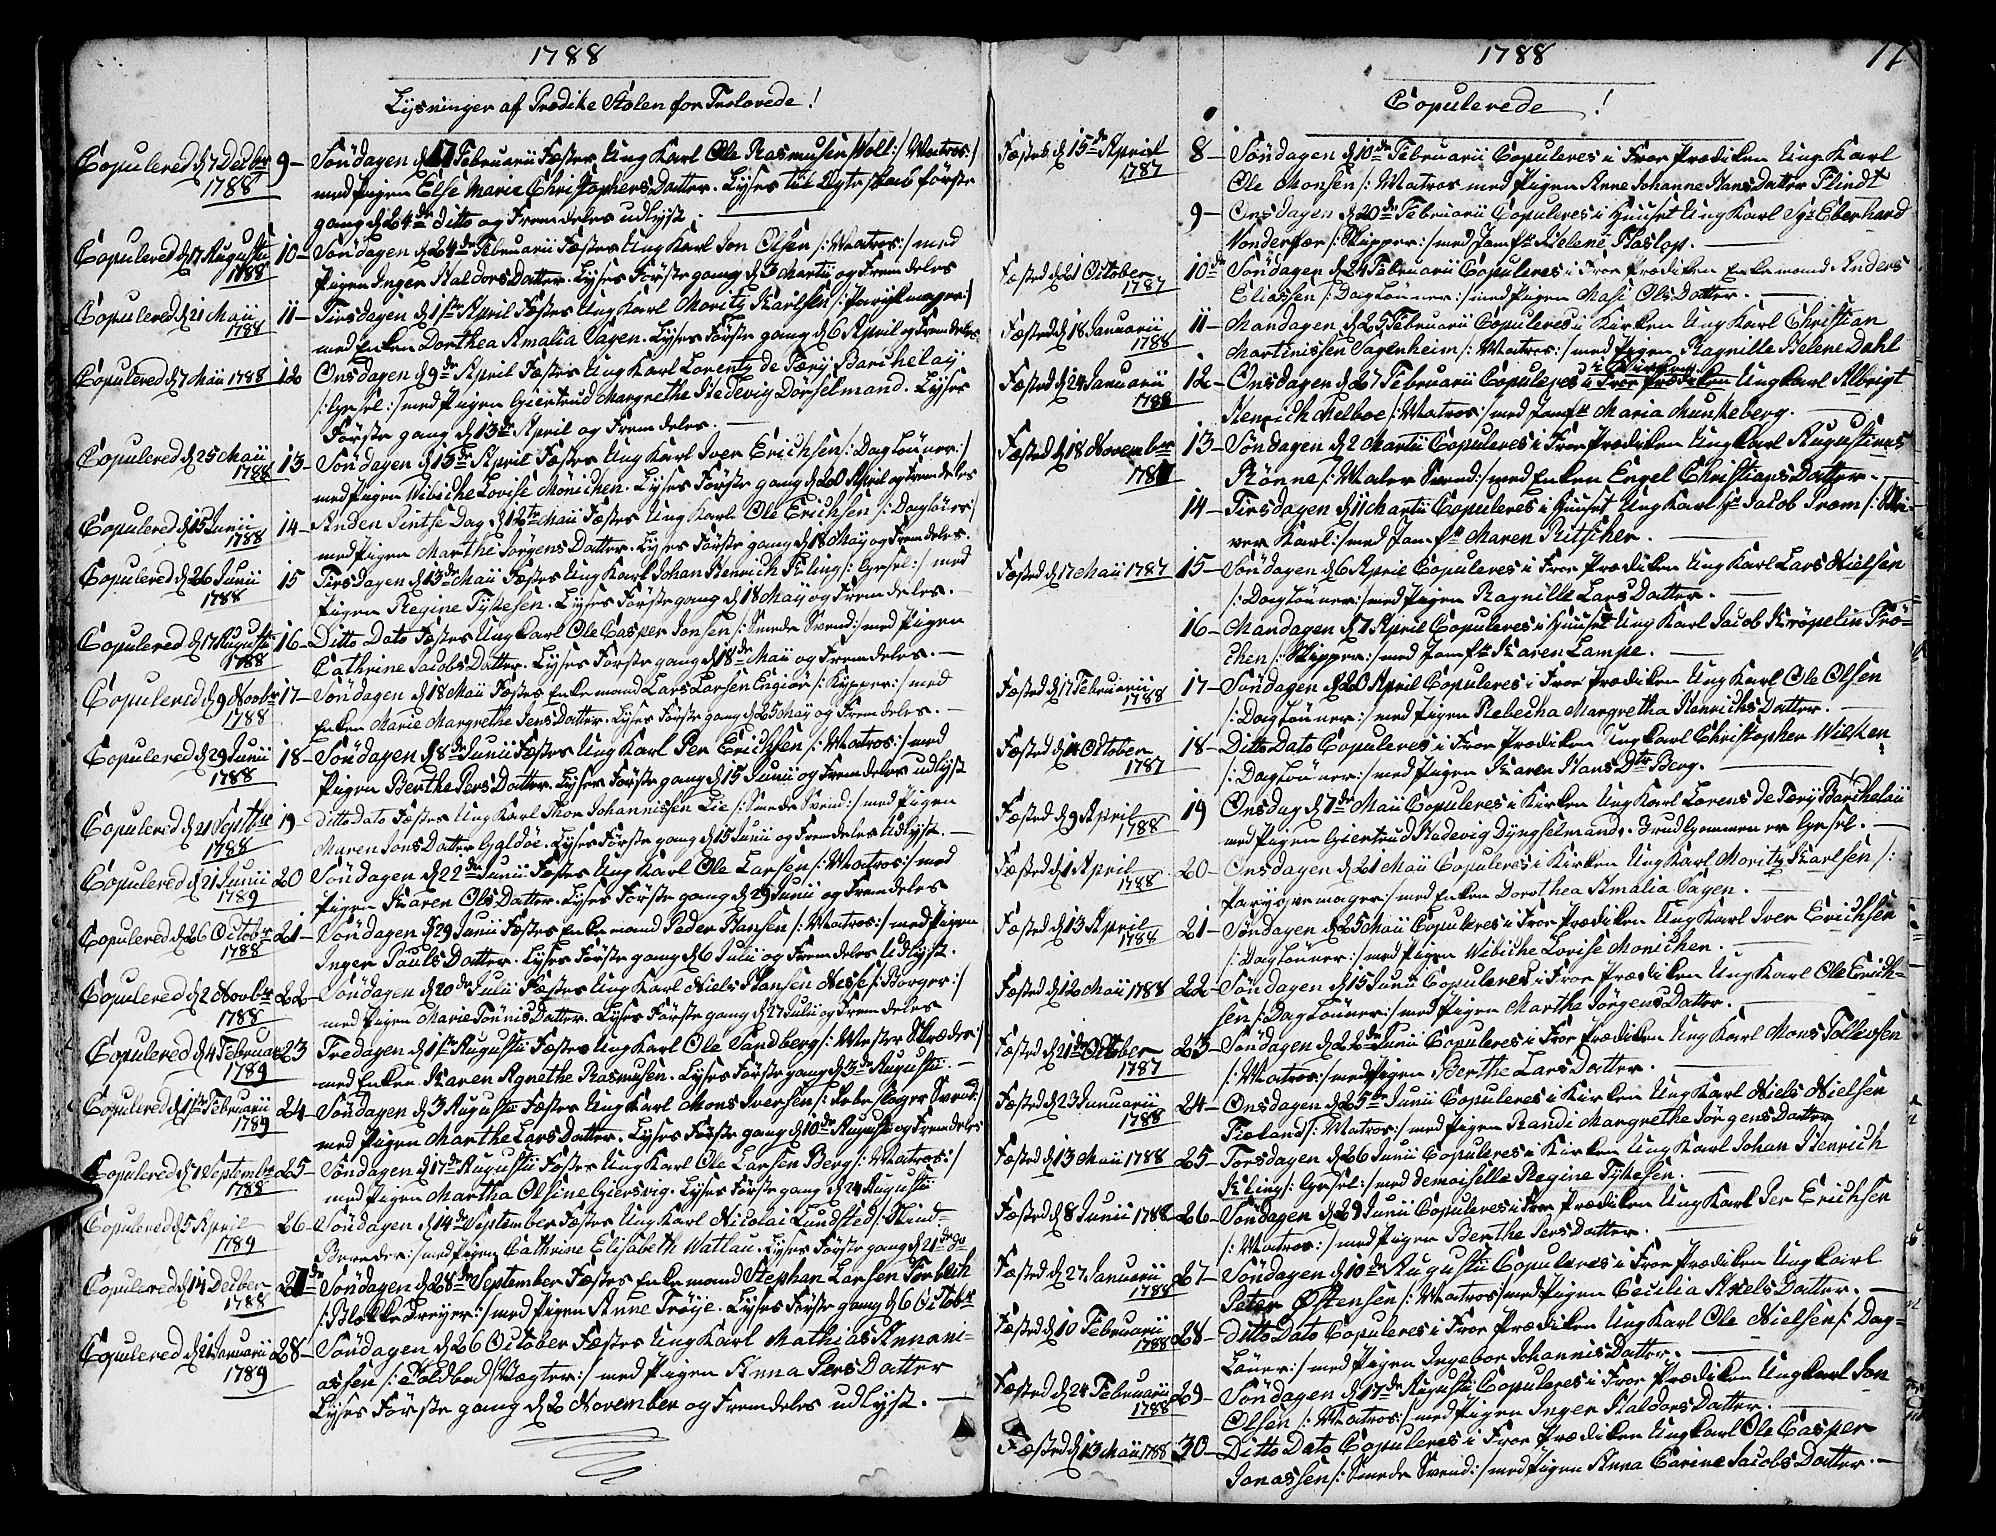 1788
Lysninger af Prædike Stolen for Trolovede!
Copulered d 7 Decbr 1788 9- Søndagen d 17 Februarii Fæstes Ung Karl Ole Rasmusen Woll /: Matros :/
med Pigen Else Marie Christophers Datter. Lyses til Ægteskab første
gang d 24de ditto og Fremdeles udlyst.
Copulered d 17 Augusti 1788 10- Søndagen d 24de Februarii Fæstes Ung Karl Jon Olsen /: Matros :/ med
Pigen Inger Haldors Datter. Lyses Første gang d 3 Martii og Fremdeles
Copulered d 21 Maii 1788 11- Tirsdagen d 1ste April Fæstes Ung Karl Moritz Karlsen /: Parykmager :/
med Enken Dorthea Amalia Sagen. Lyses Første gang d 6 April og Fremdeles
Copulered d 7 Maii 1788 12 Onsdagen d 9de April Fæstes Ung Karl Lorentz de Færy Barchelay
/: Gesel :/ med Pigen Giertrud Margrethe Hedevig Dörselmand. Lyses
Første gang d 13de April og Fremdeles.
Copulered d 25 Maii 1788 13- Søndagen d 13de April Fæstes Ung Karl Iver Erichsen /: Daglønner :/
med Pigen Wibiche Lovise Mönichen. Lyses Første gang d 20 April og Fremdeles
Copulered d 15 Junii 1788 14- Anden Pintse Dag d 12te Maii Fæstes Ung Karl Ole Erichsen /: Dagløner /
med Pigen Marthe Jørgens Datter. Lyses Første gang d 18 Maij og Fremdeles.
Copulered d 26 Junii 1788 15 Tirsdagen d 13de Maii Fæstes Ung Karl Johan Henrich Kling /: Gesel :/ med
Pigen Regine Tykesen. Lyses Første gang d 18 Maij og Fremdeles.
Copulered d 17 Augusti 1788 16- Ditto Dato Fæstes Ung Karl Ole Casper Jonsen /: Smede Svend :/ med Pigen
Cathrine Jacobs Datter. Lyses Første gang d 18de Maii og Fremdeles.
Copulered d 9 Novbr 1788 17- Søndagen d 18 Maii Fæstes Enkemand Lars Larsen Engiør /: Kypper :/ med
Enken Marie Margrethe Jens Datter. Lyses Første gang d 25 Maij og Fremdeles.
Copulered d 29 Junii 1788 18- Søndagen d 8de Junii Fæstes Ung Karl Per Erichsen /: Matros :/ med
Pigen Berthe Pers Datter. Lyses Første gang d 15 Junii og Fremdeles udlyst
Copulered d 21 Septbr 1788 19- Ditto dato Fæstes Ung Karl Thor Johannissen Lie /: Smede Svend :/ med Pigen
Maren Jons Datter Galdøe. Lyses Første gang d 15 Junii og Fremdeles Udlyst.
Copulered d 21 Junii 1789 20 Søndagen d 22de Junii Fæstes Ung Karl Ole Larsen /: Matros :/ med
Pigen Karen Ols Datter. Lyses Første gang d 29 Junii og Fremdeles
Copulered d 26 Octobr 1788 21- Søndagen d 29 Junii Fæstes Enkemand Peder Hansen /: Matros :/ med Pigen
Inger Pauls Datter. Lyses Første gang d 6 Julii og Fremdeles Udlyst.
Copulered d 2 Novbr 1788 22- Søndagen d 20de Julii Fæstes Ung Karl Niels Hansen Nesse /: Borger :/
med Pigen Marie Tönnis Datter. Lyses Første gang d 27 Julii og Fremdeles
Copulered d 4 Februar 1789 23 Fredagen d 1ste Augustii Fæstes Ung Karl Ole Sandberg /: Mester Skræder :/
med Enken Karen Agnethe Rasmusen. Lyses Første gang d 3de Augustii.
Copulered d 1ste Februarii 1789 24- Søndagen d 3 Augustii Fæstes Ung Karl Mons Iversen /: Rebslager Svend :/
med Pigen Marthe Lars Datter. Lyses Første gang d 10de Augusti og Fremdeles
Copulered d 7 Septembr 1788 25- Søndagen d 17de Augustii Fæstes Ung Karl Ole Larsen Berg /: Matros :/
med Pigen Martha Olsine Giersvig. Lyses Første gang d 24 Augustii
Copulered d 5 April 1789 26- Søndagen d 14de September Fæstes Ung Karl Nicolai Lundsted /: Kind-
Brænder :/ med Pigen Cathrine Elisabeth Watlau. Lyses Første gang d 21de do
Copulered d 14 Decber 1788 27de Søndagen d 28de September Fæstes Enkemand Stephan Larsen Forbech
/: Blokke Dreyer :/ med Pigen Anne Trøye. Lyses Første gang d 6 Octobr
Copulered d 21 Januarii 1789 28- Søndagen d 26 October Fæstes Ung Karl Mathias Annani-
assen /: Toldbod Vægter :/ med Pigen Anna Pers Datter
Lyses Første gang d 2 November og Fremdeles udlyst.
1788 17
Copulerede!
Fæsted d 15de April 1787 8- Søndagen d 10de Februarii Copuleres i Froe Prædiken Ung Karl
Ole Monsen /: Matros med Pigen Anne Johanne Hans Datter Flindt
9- Onsdagen d 20de Februarii Copuleres i Huuset Ung Karl Sr Eberhard
Vonderfær /: Skipper :/ med Jomfr Helene Haslop.
Fæsted d 21 October 1787 10de Søndagen d 24 Februarii Copuleres i Froe Prædiken Enkemand Anders
Eliassen /: Dagløner :/ med Pigen Masi Ols Datter.
Fæsted d 18 Januarii 1788 11- Mandagen d 25 Februarii Copuleres i Kirken Ung Karl Christian
Martinissen Sagenheim /: Matros :/ med Pigen Ragnille Helene Dahl
Fæsted d 24 Januarii 1788 12- Onsdagen d 27 Februarii Copuleres i Kirken i Froe Prædiken Ung Karl Albrigt
Henrich Melboe /: Matros :/ med Jomfr Maria Munkeberg.
Fæsted d 18 November 1787 13- Søndagen d 2 Martii Copuleres i Froe Prædiken Ung Karl Augustinus
Rönne /: Maler Svend :/ med Enken Engel Christians Datter.
14- Tirsdagen d 11 Martii Copuleres i Huuset Ung Karl Sr Jacob From /: Skri-
ver Karl :/ med Jomfr Maren Ritscher.
Fæsted d 17 Maii 1787 15- Søndagen d 6 April Copuleres i Froe Prædiken Ung Karl Lars Nielsen
/: Dagløner :/ med Pigen Ragnille Lars Datter.
16- Mandagen d 7 April Copuleres i Huuset Ung Karl Jacob Kröpelin Frö-
chen /: Skipper :/ med Jomfr Karen Lampe.
Fæsted d 17 Februarii 1788 17- Søndagen d 20 April Copuleres i Froe Prædiken Ung Karl Ole Olsen
/: Dagløner :/ med Pigen Rebecha Margretha Henrichs Datter.
Fæsted d 14 October 1787 18- Ditto Dato Copuleres i Froe Prædiken Ung Karl Christopher Wilsken
/: Dagløner :/ med Pigen Karen Hans Dtr Berg.
Fæsted d 9 April 1788 19 Onsdag d 7de Maii Copuleres i Kirken Ung Karl Lorens de Fery Barchelaii
med Pigen Giertrud Hadevig Dyngselmand. Brudgommen er Gesel.
Fæsted d 1 April 1788 20- Onsdagen d 21 Maii Copuleres i Kirken Ung Karl Moritz Karlsen /:
Parykvemager :/ med Enken Dorothea Amalia Sagen.
Fæsted d 13 April 1788 21- Søndagen d 25 Maii Copuleres i Froe Prædiken Ung Karl Iver Erichsen
/: Dagløner :/ med Pigen Wibiche Lovise Monichen.
Fæsted d 12 Maii 1788 22- Søndagen d 15 Junii Copuleres i Froe Prædiken Ung Karl Ole Erich-
sen /: Dagløner :/ med Pigen Marthe Jörgens Datter.
Fæsted d 21de October 1787 23- Søndagen d 22de Junii Copuleres i Froe Prædiken Ung Karl Mons Tollevsen
/: Matros :/ med Pigen Berthe Lars Datter.
Fæsted d 23 Januarii 1788 24- Onsdagen d 25de Junii Copuleres i Kirken Ung Karl Niels Nielsen
Fieland /: Matros :/ med Pigen Randi Margrethe Jörgens Datter
Fæsted d 13 Maii 1788 25- Torsdagen d 26 Junii Copuleres i Kirken Ung Karl Johan Henrich
Kling /: Gesel :/ med demoiselle Regine Tykesen.
Fæsted d 8 Junii 1788 26- Søndagen d 29 Junii Copuleres i Froe Prædiken Ung Karl Per Erichsen
/: Matros :/ med Pigen Berthe Pers Datter.
Fæsted d 27 Januarii 1788 27- Søndagen d 10de Augustii Copuleres i Froe Prædiken Ung Karl
Peter Østensen /: Matros / med Pigen Cecilia Axels Datter.
Fæsted d 10 Februarii 1788 28- Ditto Dato Copuleres i Froe Prædiken Ung Karl Ole Nielsen /: Dag-
Løner :/ med Pigen Ingebor Johannis Datter.
Fæsted d 24 Februarii 1788 29- Søndagen d 17de Augustii Copuleres i Froe Prædiken Ung Karl Jon
Olsen /: Matros :/ med Pigen Inger Haldors Datter.
Fæsted d 13 Maii 1788 30- Ditto Dato Copuleres i Froe Prædiken Ung Karl Ole Casper
Jonassen /: Smede Svend :/ med Pigen Anna Carine Jacobs Datter.